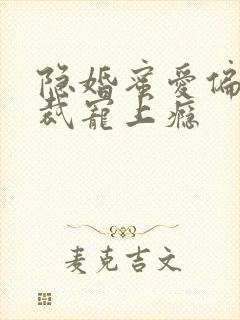 隐婚蜜爱偏
裁宠上瘾
麦克吉文